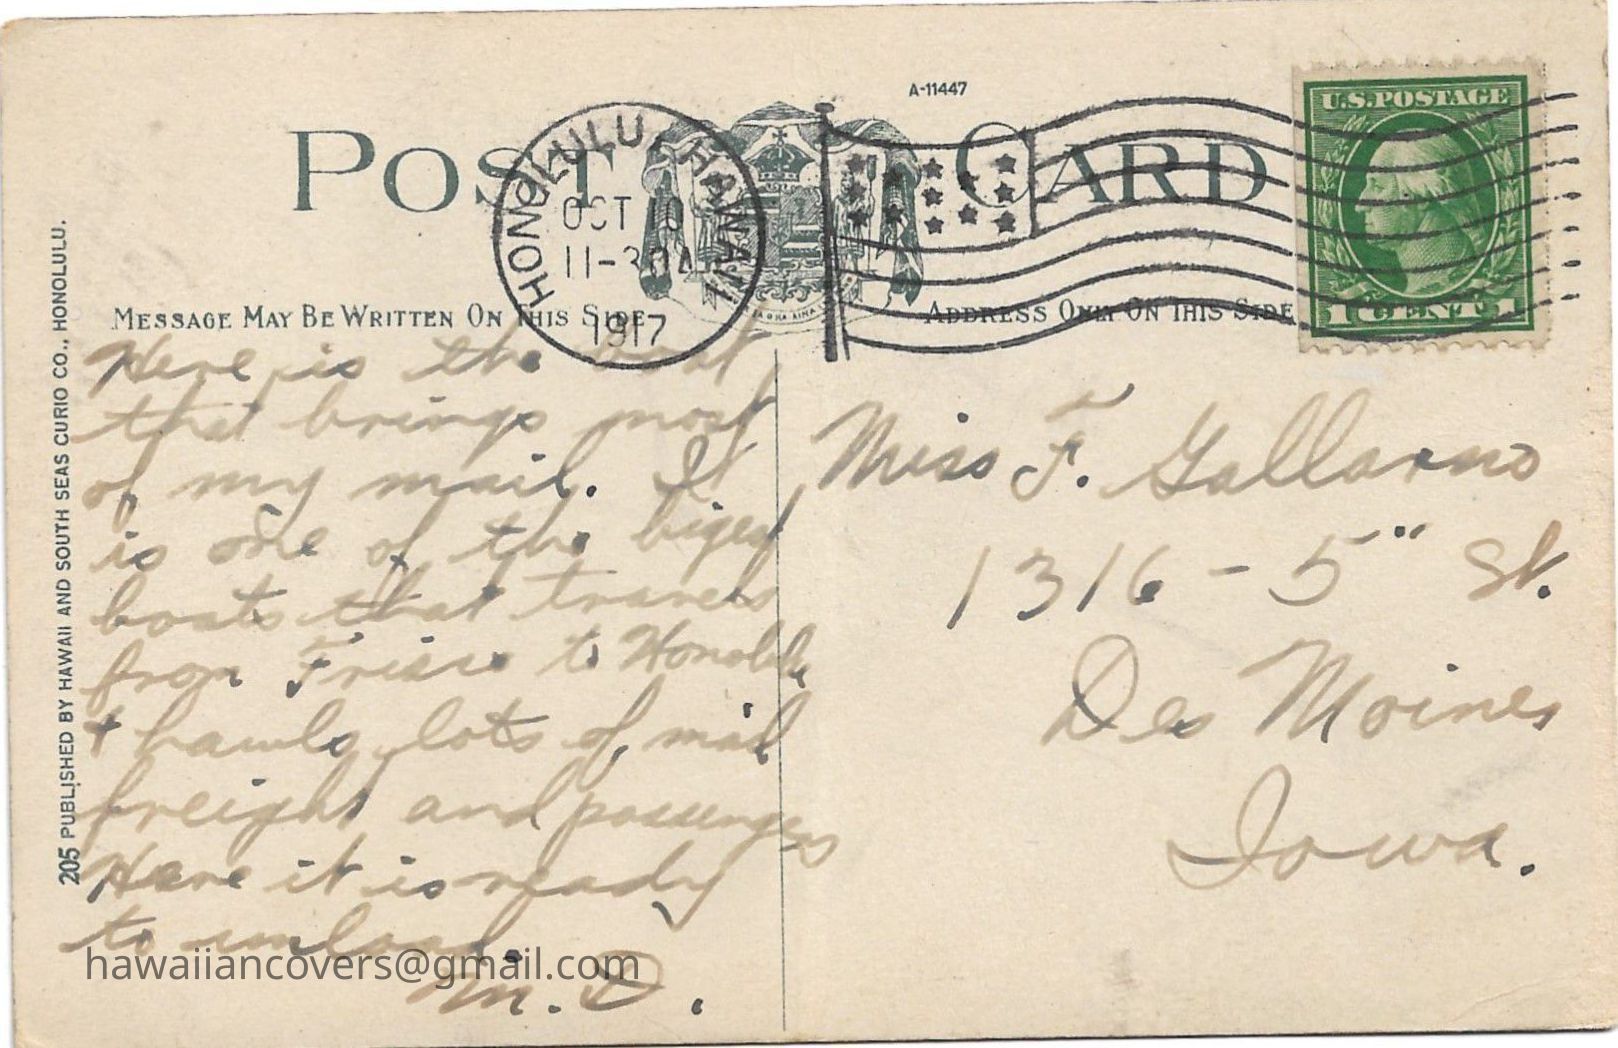 A-11447
POST CARD
HONOLULU, HAWAII
OCT 10
11-30A
1917
U.S. POSTAGE
1 CENT 1
MESSAGE MAY BE WRITTEN ON THIS SIDE
ADDRESS ONLY ON THIS SIDE
205 PUBLISHED BY HAWAII AND SOUTH SEAS CURIO CO., HONOLULU.
Here is the boat
that brings most
of my mail. It
is one of the bigest
boats that travels
from Frisco to Honolulu
+ hauls lots of mail
freight and passengers
Here it is ready
to unload.
M. D.
Miss F. Gallarno
1316 - 5" St.
Des Moines
Iowa.
hawaiiancovers@gmail.com